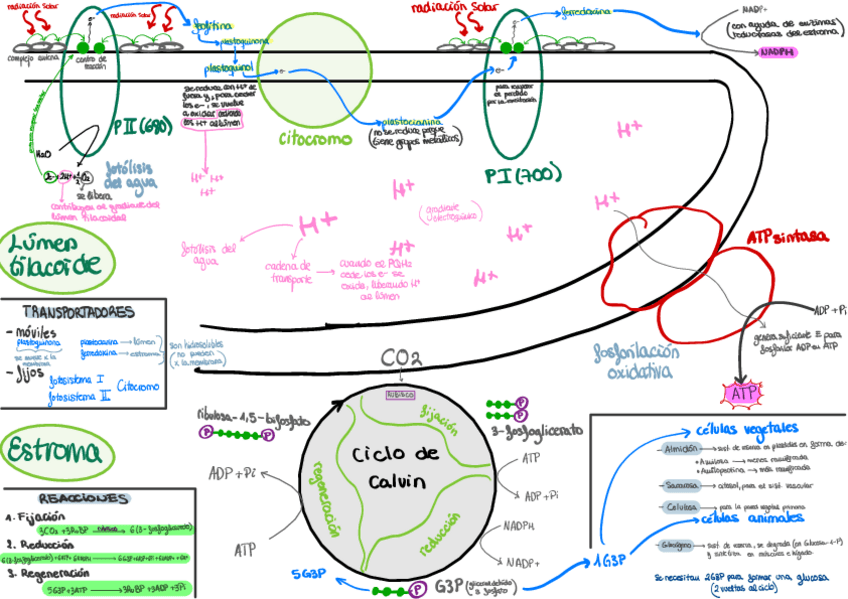 radiación solar
radiación solar
complejo antena
centro de reacción
feofitina
plastoquinona
plastoquinol
e-
se reduce con H+ de
fuera y, para ceder
los e-, se vuelve
a oxidar cediendo
los H+ al lúmen
PII (680)
H2O
2e- + 2H+ + ½O2
se libera
contribuyen al gradiente del
lúmen tilacoidal
fotólisis
del agua
citocromo
plastocianina
(no se reduce porque
tiene grupos metálicos)
radiación solar
e-
e-
para recuperar
el perdido
por la
PI (700)
ferredoxina
NADP+
(con ayuda de enzimas
reductoras del estroma)
NADPH
H+ H+
H+ H+
H+
H+
(gradiente
electroquímico)
H+
H+
H+
H+
H+
fotólisis del
agua
cadena de
transporte
cuando el PQH2
cede los e- se
oxida, liberando H+
al lúmen
Lúmen
tilacoide
ATP sintasa
ADP + Pi
genera suficiente E para
fosforilar ADP en ATP
fosforilación
oxidativa
ATP
TRANSPORTADORES
- móviles
plastoquinona
se mueve x la
membrana
plastocianina → lúmen
ferredoxina → estroma
son hidrosolubles
(no pueden
x la membrana)
- fijos
fotosistema I
fotosistema II
Citocromo
Estroma
REACCIONES
1. Fijación
3CO2 + 3RuBP → 6(3-fosfoglicerato)
2. Reducción
3. Regeneración
5G3P + 3ATP → 3RuBP + 3ADP + 3Pi
CO2
RUBISCO
ribulosa-1,5-bifosfato
P
P
fijación
P
P
3-fosfoglicerato
Ciclo de
Calvin
regeneración
reducción
ADP + Pi
ATP
ATP
ADP + Pi
NADPH
NADP+
5G3P
P
G3P (gliceraldehído
3 fosfato)
1G3P
células vegetales
- Almidón → sust. de reserva en plastidios en forma de:
• Amilosa → menos ramificada
• Amilopectina → más ramificada
- Sacarosa → citosol, para el sist. vascular
- Celulosa → para la pared vegetal primaria
células animales
- Glucógeno → sust. de reserva, se degrada (en Glucosa-1-P)
y sintetiza en músculos e hígado
se necesitan 2G3P para formar una glucosa
(2 vueltas al ciclo)